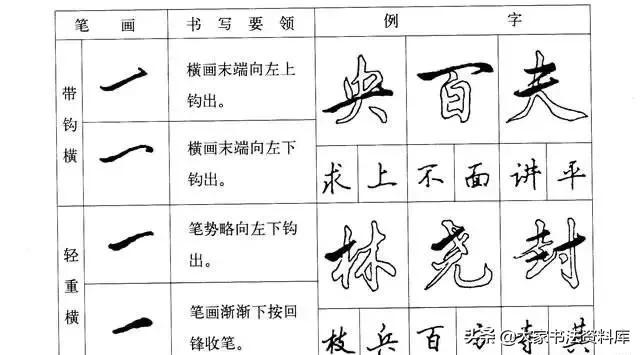 笔 画 书 写 要 领 例 字
带钩横
横画末端向左上
钩出。
央 百 夫
横画末端向左下
钩出。
求 上 不 面 讲 平
轻重横
笔势略向左下钩
出。
林 尧 封
笔画渐渐下按回
锋收笔。
枝 兵 百
头条 @大家书法资料库